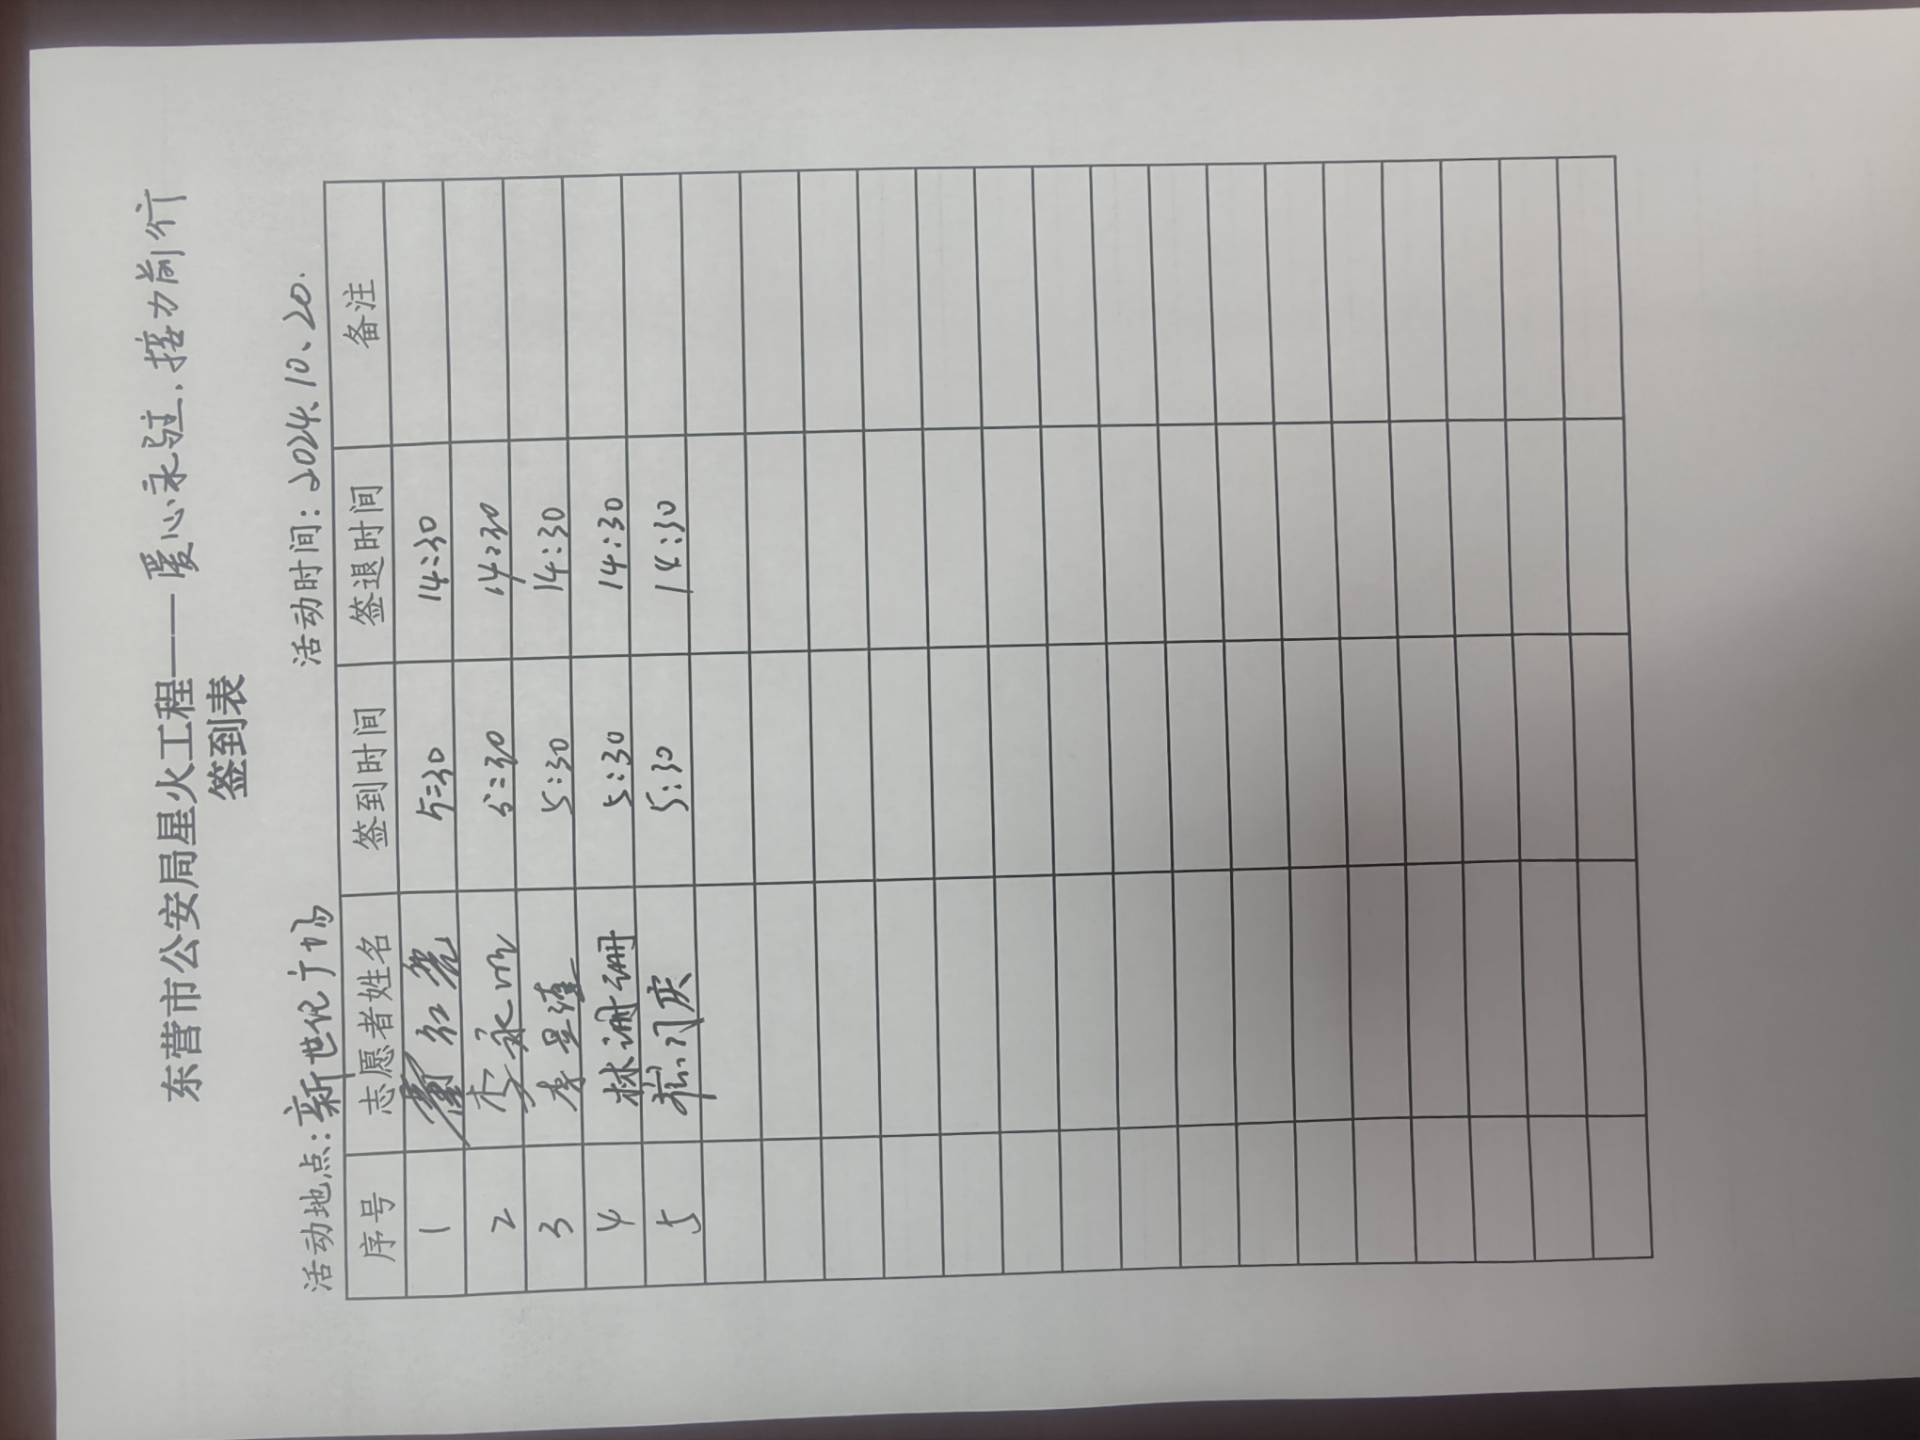 东营市公安局星火工程——暖心永驻.接力前行
签到表
活动地点:新世纪广场 活动时间:2024.10、20.
序号 志愿者姓名 签到时间 签退时间 备注
1 5:30 14:30
2 李永 5:30 14:30
3 李星 5:30 14:30
4 林珊珊 5:30 14:30
5 庆 5:30 14:30